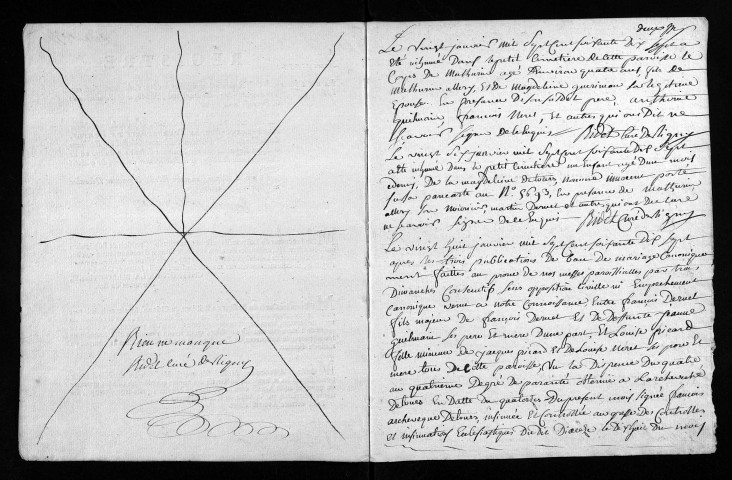 Rien ne manque
Bidet curé de Rigny
Le vingt janvier mil Sept Cent soixante dix Sept a
été inhumé Dans le petit cimetière de Cette paroisse le
Corps de Mathurin agé Denviron quatre ans, fils de
Mathurin allery, et de Magdeleine guerineau sa legitime
Epouse. En presence De son dit pere,
guilmain, francois Meret, et autres qui ont Dit ne
scavoir Signer De le Enquis Bidet Curé de Rigny
Le vingt Six janvier mil Sept Cent soixante dix Sept
a été inhumé dans le petit cimetière un enfant agé Dun mois
De la magdeleine de tours nommé
sur sa pancarte au N° 5693, En presence de Mathurin
allery Son nouricier, martin Dernet et autres qui ont declaré
ne scavoir Signer De le Enquis Bidet Curé de Rigny
Le vingt huit janvier mil Sept Cent soixante dix Sept
apres les trois publications de ban de mariage Canonique
ment faites au prone de nos messes paroissialles par trois
Dimanches Consecutifs Sans opposition Civille ni Empechement
Canonique venu a notre Connoissance Entre francois Dernet
fils majeur De francois Dernet et De Deffunte jeanne
guilmain ses pere et mere Dune part, Et Louise picard
fille mineure De jacques picard et De Louise Meret ses pere et
mere tous de Cette paroisse, Vu la Dispense Du quatre
au quatrieme Degré de parenté obtenue a Larcheveché
De tours En Datte du quatorze Du present mois Signée francois
archeveque De tours insinuée et Controllée au greffe des Controlles
et insinuations Ecclesiastiques Du dit Diocèze le Du mois